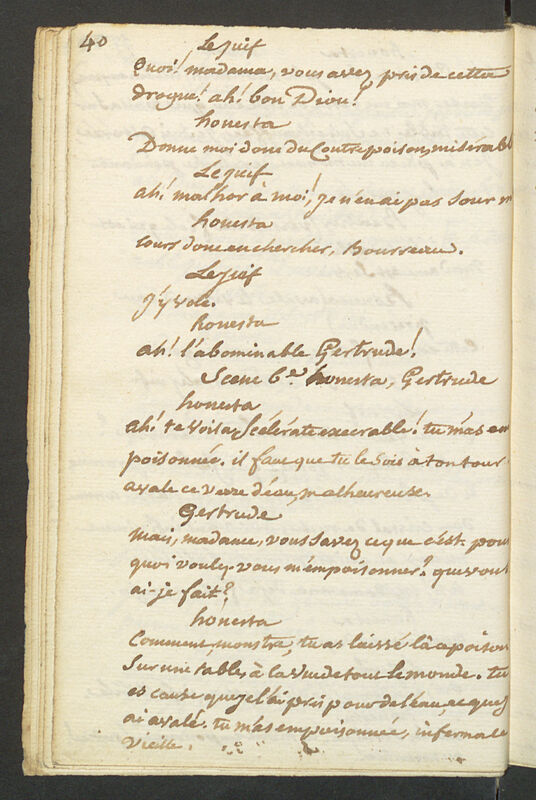 40
Le juif
Quoi! madame, vous avez pris de cette
drogue! ah! bon Dieu!
honesta
Donne moi donc du Contrepoison, miserable
Le juif
ah! malhor à moi! je n'en ai pas sour m
honesta
Cours donc en chercher, Bourreau.
Le juif
J'y vole.
honesta
ah! l'abominable Gertrude!
Scene 6.e honesta, Gertrude
honesta
ah! te voila, scélérate execrable! tu m'as em
poisonnée. il faut que tu le sois à ton tour
avale ce verre d'eau, malheureuse.
Gertrude
mais, madame, vous savez ce que c'est. pour
quoi voulez-vous m'empoisonner? que vous
ai-je fait?
honesta
Comment, monstre, tu as laissé là ce poison
Sur une table, à la vue de tout le monde. tu
es cause que je l'ai pris pour de l'eau, et que j
ai avalé. tu m'as empoisonnée, infernale
vieille.